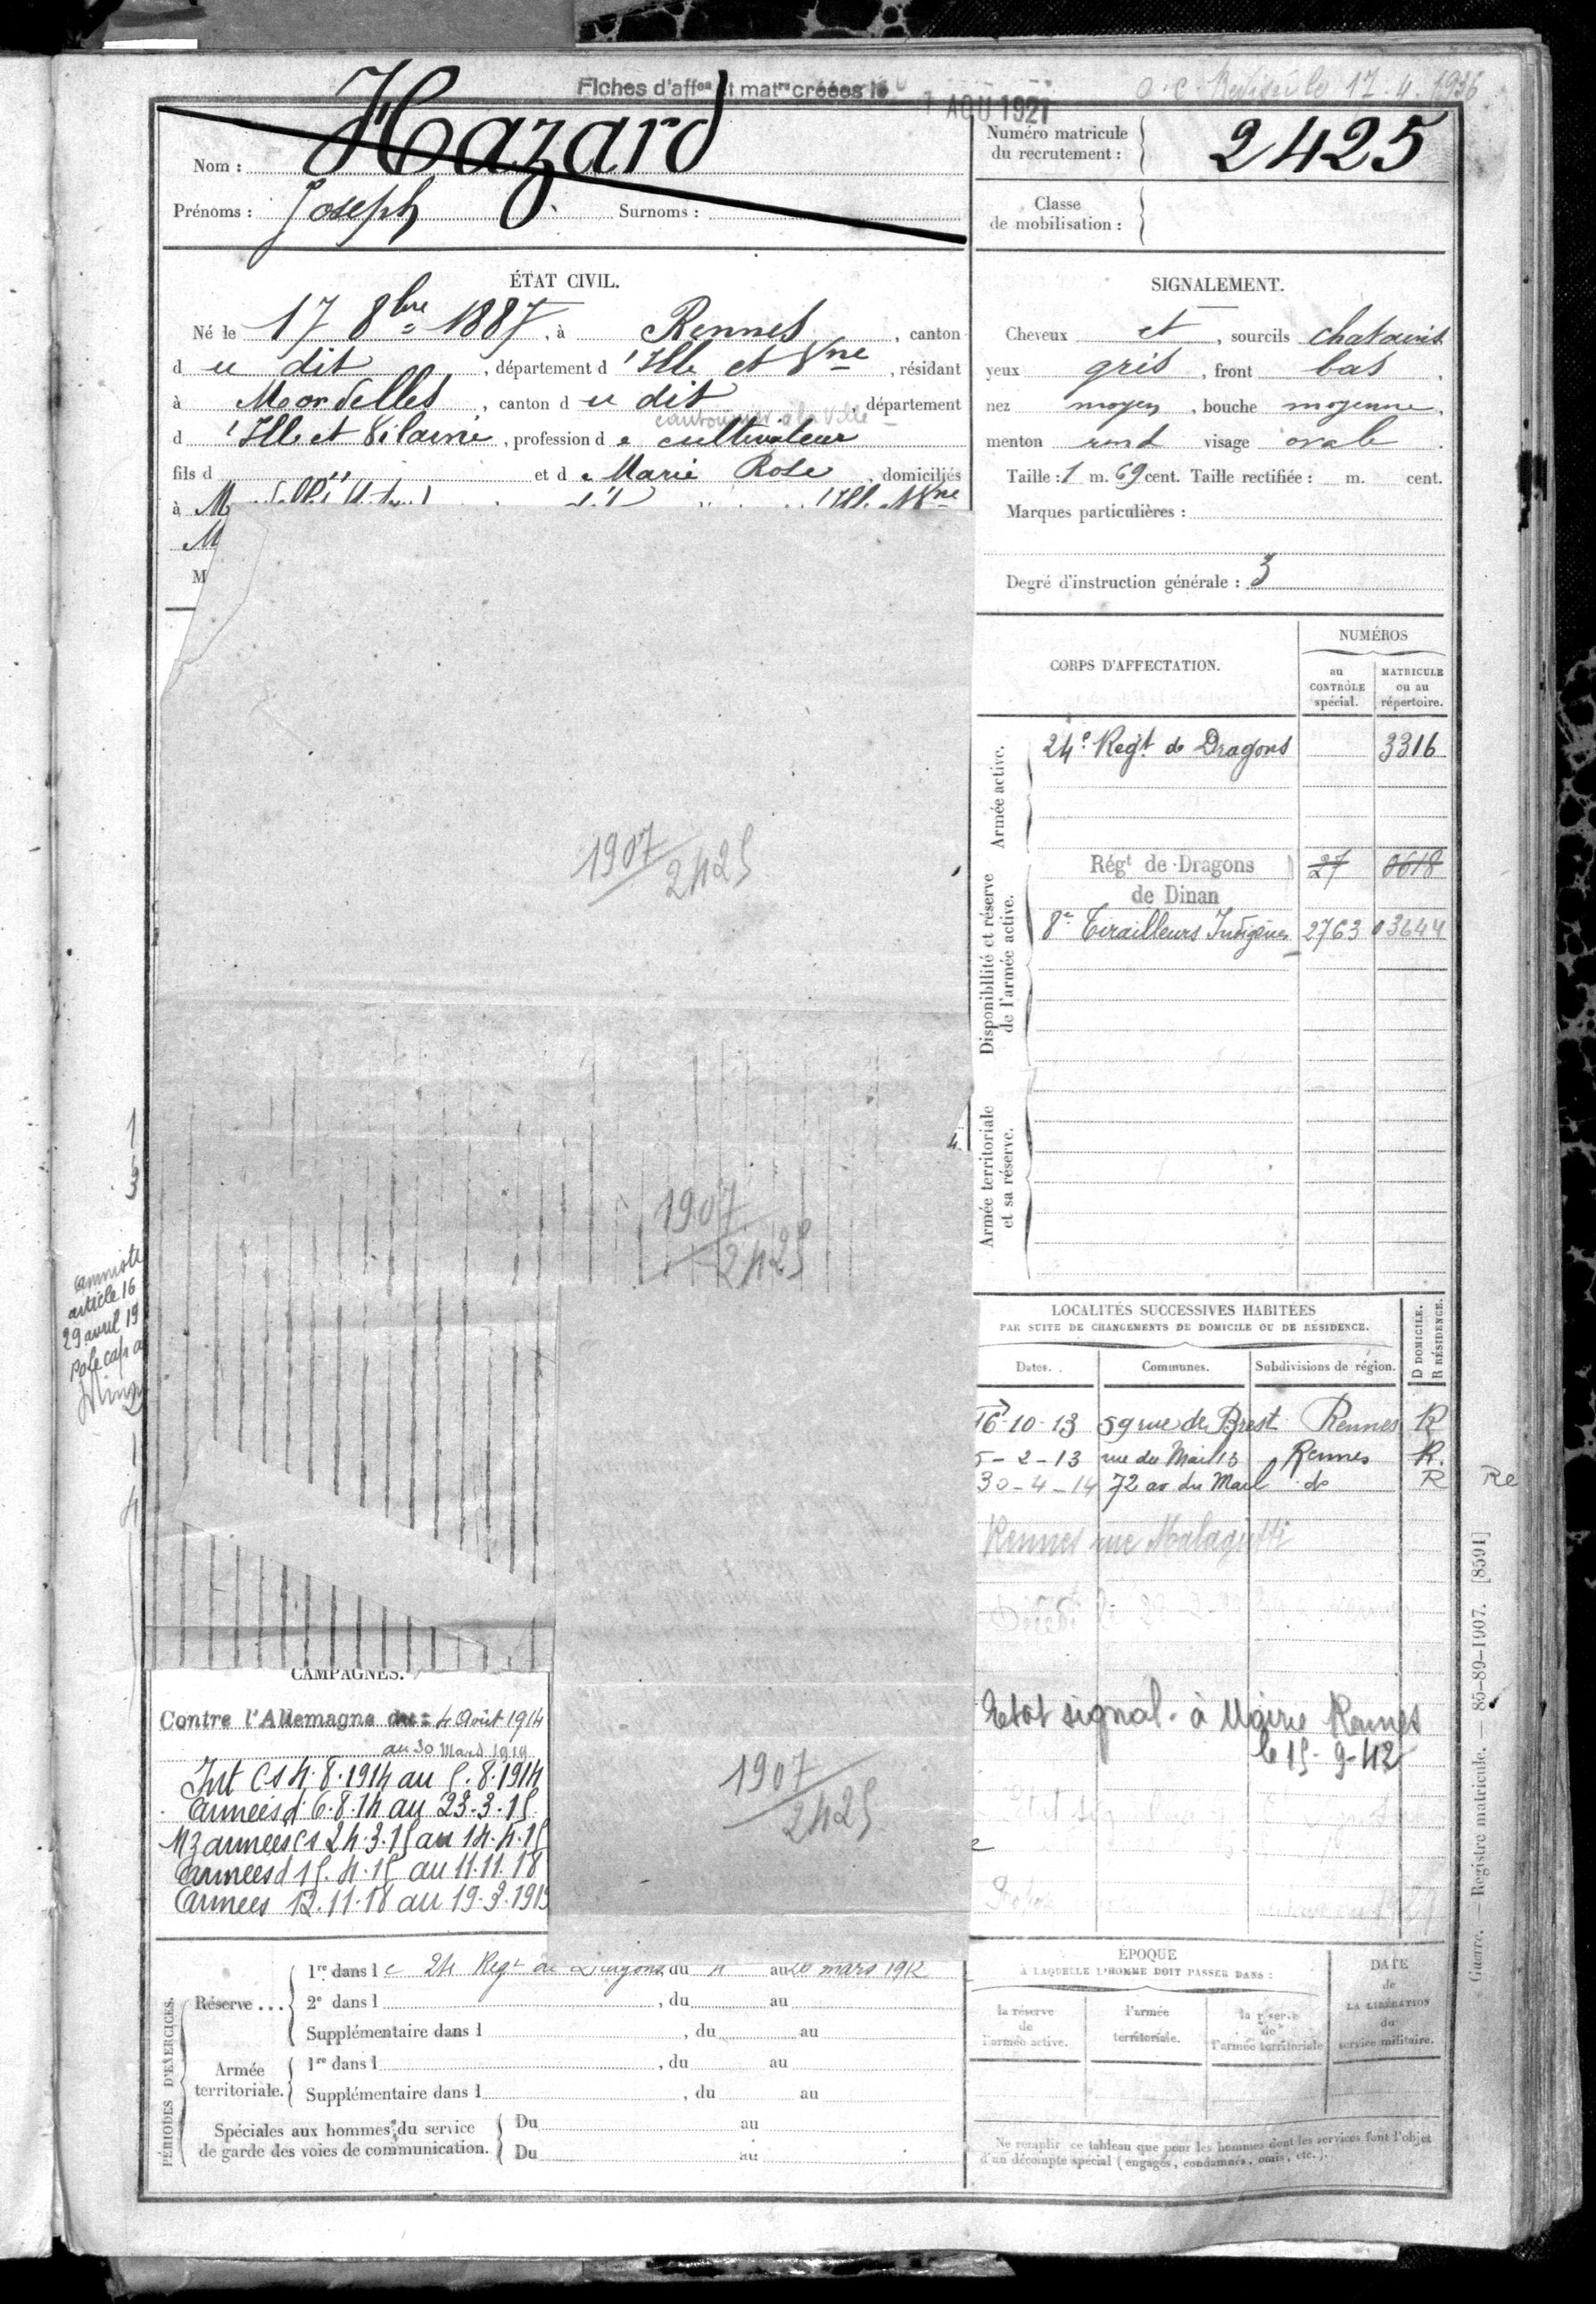 Fiches d'aff^on et mat^re créées le
AOU 1921
17.4.1936
Nom : Hazard
Prénoms : Joseph Surnoms :
Numéro matricule du recrutement : 2425
Classe de mobilisation :
ÉTAT CIVIL.
Né le 17 8bre 1887, à Rennes, canton
du dit, département d'Ille et Vne, résidant
à Mordelles, canton du dit, département
cantonnier à la Ville
d'Ille et Vilaine, profession de cultivateur
fils d " et de Marie Rose, domiciliés
à M
M
M
SIGNALEMENT.
Cheveux et, sourcils chatains
yeux gris, front bas,
nez moyen, bouche moyenne,
menton rond visage ovale.
Taille : 1 m. 69 cent. Taille rectifiée : m. cent.
Marques particulières :
Degré d'instruction générale : 3
CORPS D'AFFECTATION.
NUMÉROS
au CONTRÔLE spécial.
MATRICULE ou au répertoire.
Armée active.
24e Regt de Dragons 3316
Disponibilité et réserve de l'armée active.
Régt de Dragons 27 0618
de Dinan
8e Tirailleurs Indigènes 2763 03644
Armée territoriale et sa réserve.
1907
2425
1907
2425
1907
2425
amnistié
article 16
29 avril 19
LOCALITÉS SUCCESSIVES HABITÉES
PAR SUITE DE CHANGEMENTS DE DOMICILE OU DE RÉSIDENCE.
Dates. Communes. Subdivisions de région. D DOMICILE. R RÉSIDENCE.
16-10-13 59 rue de Brest Rennes R
5-2-13 rue du Mail 13 Rennes R.
30-4-14 72 av du Mail do R
Re
Rennes rue Malaguti
Etat signal. à Mairie Rennes
le 15-9-42
CAMPAGNES.
Contre l'Allemagne du 4 Août 1914
au 30 Mars 1919
Int CS 4.8.1914 au 5.8.1914
Armées d 6.8.14 au 23.3.15
MZ armées CS 24.3.15 au 14.4.15
Armées d 15.4.15 au 11.11.18
Armées 12.11.18 au 19.3.1919
PÉRIODES D'EXERCICES.
Réserve... 1re dans le 24 Regt de Dragons du 4 au 20 mars 1912
2e dans l , du au
Supplémentaire dans l , du au
Armée territoriale. 1re dans l , du au
Supplémentaire dans l , du au
Spéciales aux hommes du service de garde des voies de communication. Du au
Du au
ÉPOQUE
À LAQUELLE L'HOMME DOIT PASSER DANS :
la réserve de l'armée active.
l'armée territoriale.
la réserve de l'armée territoriale
DATE de LA LIBÉRATION du service militaire.
Ne remplir ce tableau que pour les hommes dont les services font l'objet
d'un décompte spécial (engagés, condamnés, omis, etc.).
Guerre. — Registre matricule. — 85-89-1907. [8591]